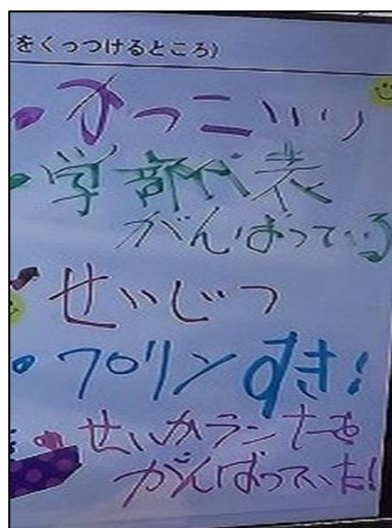 をくっつけるところ)
かっこいい
学部代表
がんばっている
せいじつ
プリンすき!
せいかランナーも
がんばっていた!